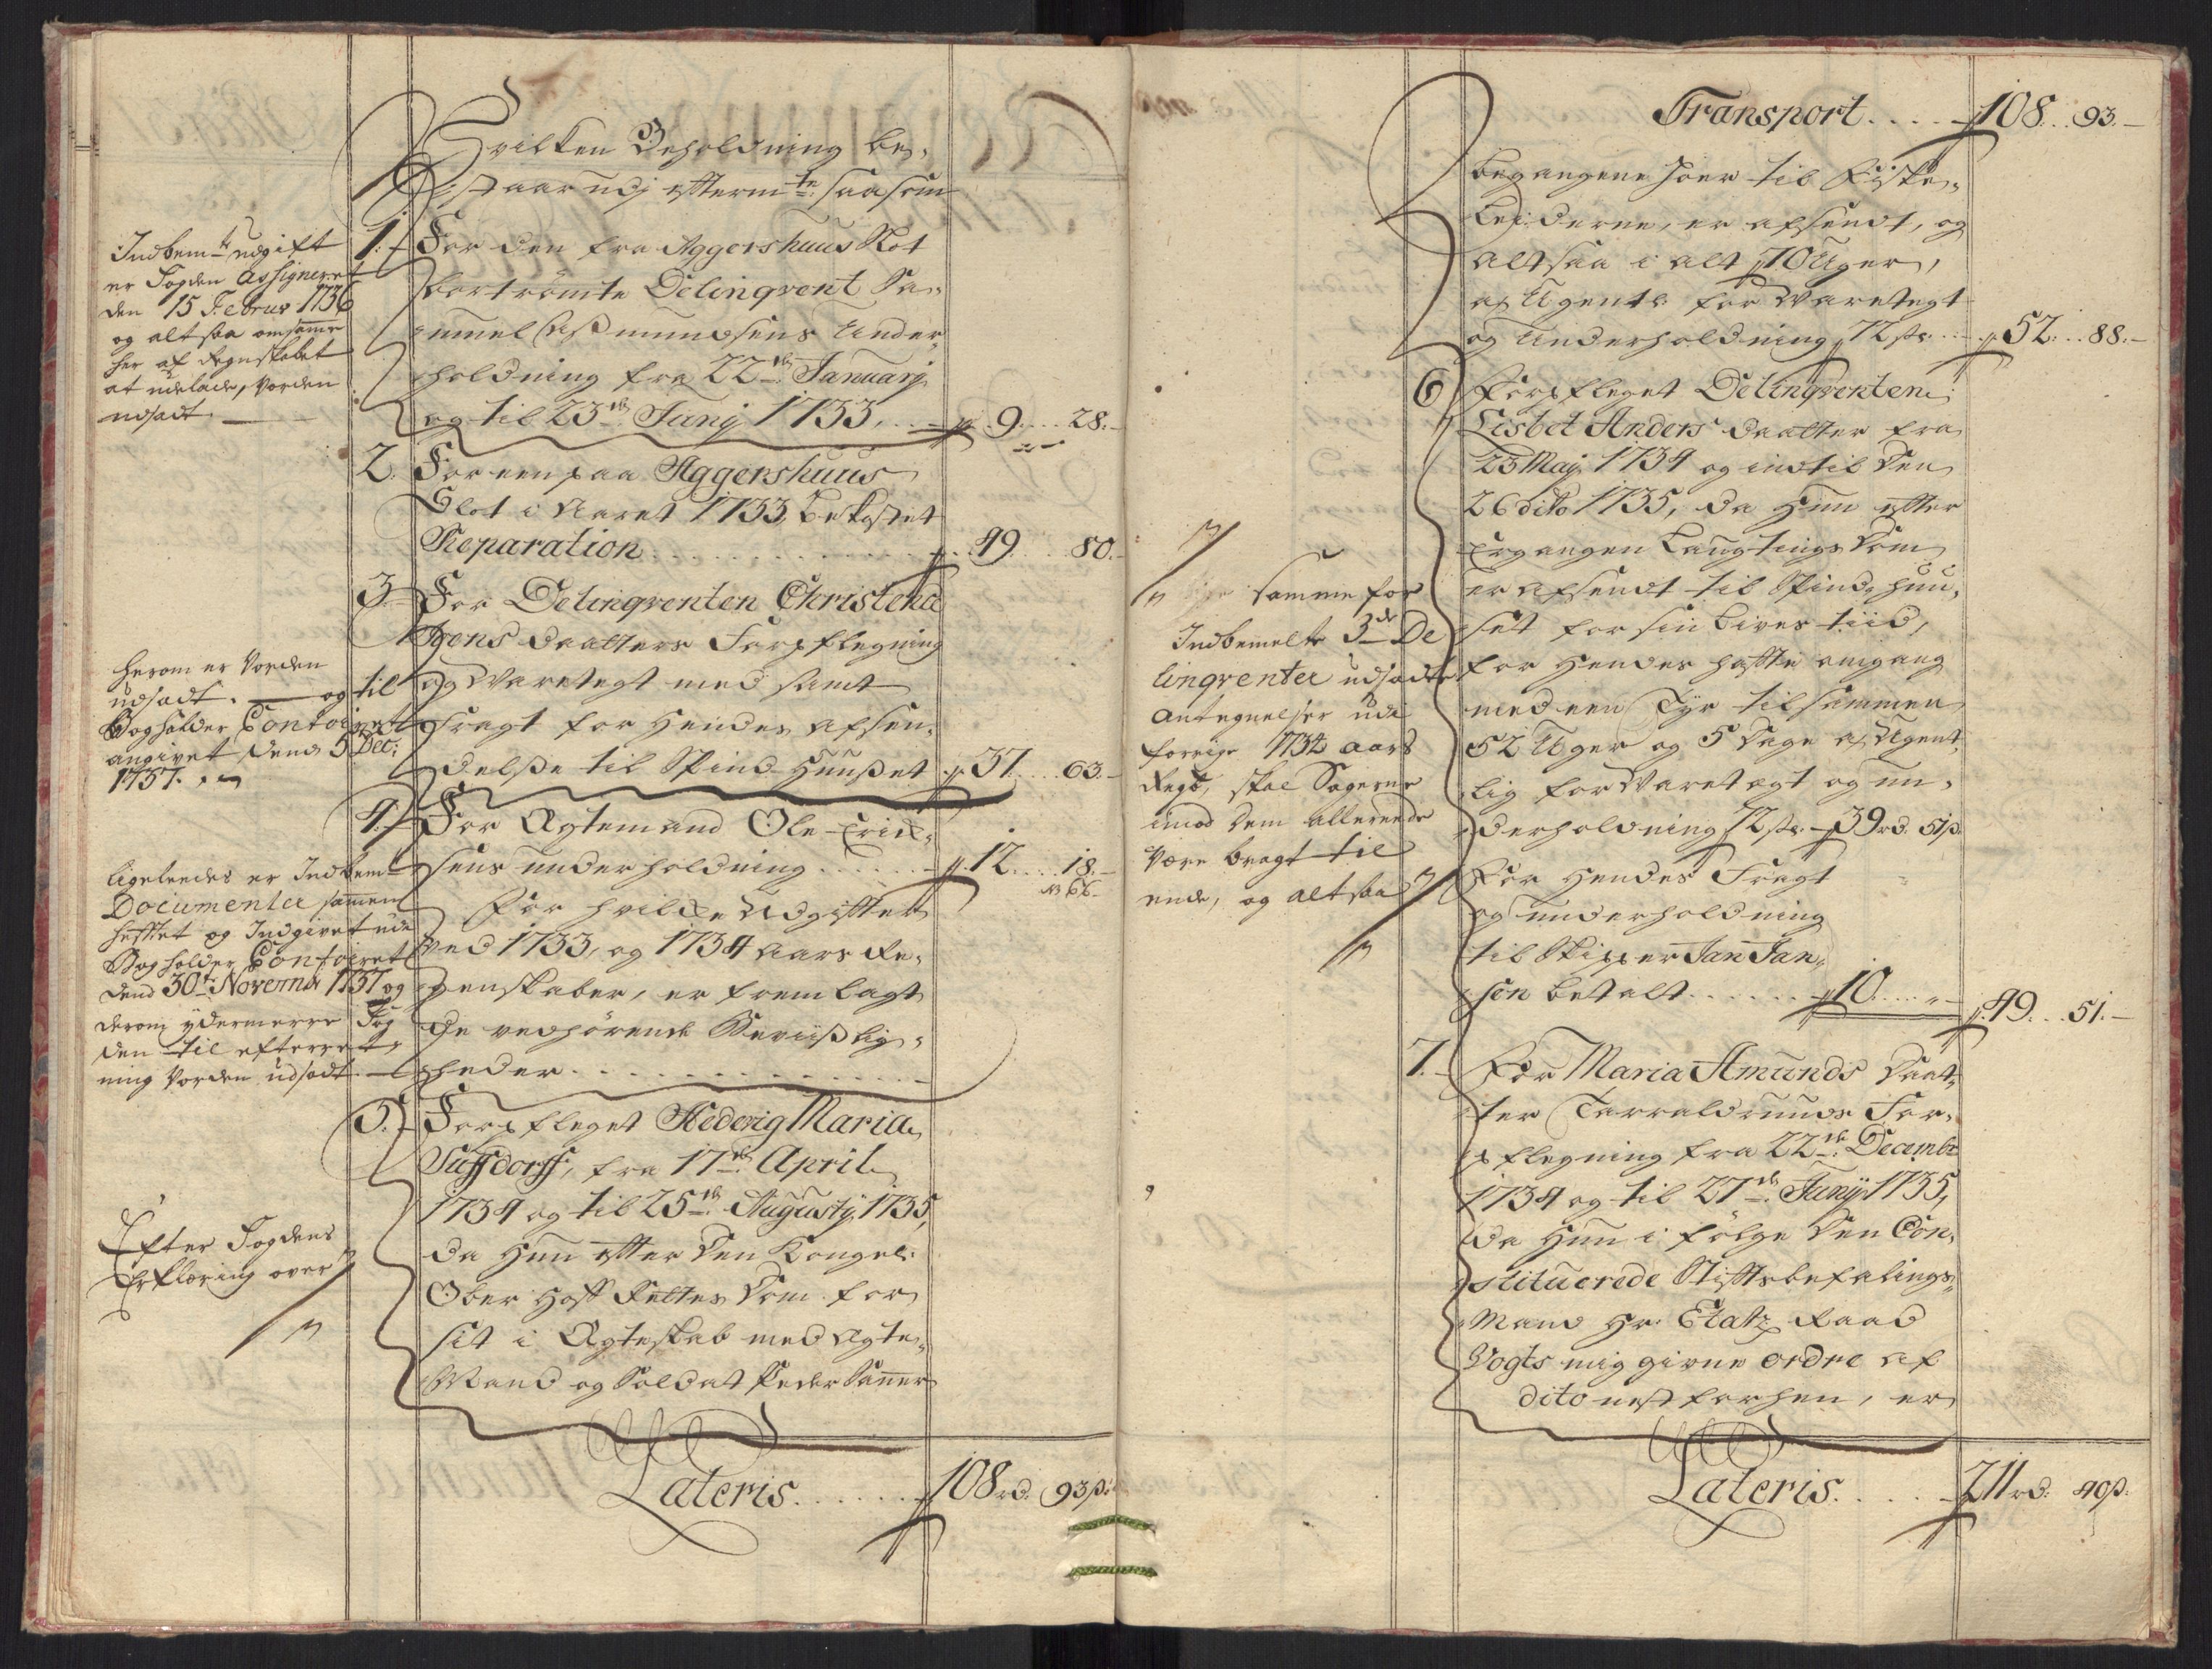 Hvilken Beholdning be-
staar udj efterm:te saasom
1. For den fra Aggershuus Slot
bortrömte Delinqvent Sa-
muel Assmundsens Under-
holdning fra 22de Januarj
og til 23de Junj 1733. 9. 28.
2. For een paa Aggershuus
Slot i Aaret 1733, bekostet
Reparation 49. 80.
3. For Delinqventen Christence
Jens daatters Forpflegning
og Varetegt med samt
fragt for hendes afsen-
delsse til Spind-Huusset 37. 63.
4. For Ægtemand Ole Erick-
sens underholdning 12. 18.
For hvilcke Udgifter
ved 1733, og 1734 aars Re-
genskaber, er fremlagt
de vedhörende Beviisslig-
heder
5. Forpfleget Hedevig Maria
Suffdorff, fra 17de April
1734 og til 25de Augustij 1735,
da hun efter den Kongel:
Ober Hoff Rettes Dom for
sit i Ægteskab med Ægte-
Mand og Soldat Peder Sanner
Lateris. 108 rd. 93 s:
Indbem:te udgift
er Fogden Assigneret
den 15 Februar 1736
og altsaa om samme
her af Regnskabet
at udelade, vorden
udsadt.
herom er vorden
udsadt. og til
Bogholder Contoiret
angivet dend 5 Dec:
1737.
ligeleedes er Indbem:te
Documenter sammen
hefftet og Indgivet udi
Bogholder Contoiret
dend 30te Novembr 1737 og
derom ydermeere Fog
den til efterret-
ning vorden udsadt.
Efter Fogdens
Erklæring over
Transport 108. 93.
begangene hoer til Fiske-
Lejderne, er afsendt, og
altsaa i alt 70 Uger,
a Ugentl: for Varetegt
og Underholdning 72 s: 52. 88.
6 Forpfleget Delinqventen
Lisbet Anders daatter fra
23 Maj 1734 og indtil den
26 dito 1735, da hun efter
Ergangen Laugtings Dom
er afsendt til Spind-huu-
set for sin Lives tiid,
for hendes hafte omgang
med een Tyr tilsammen
52 Uger og 5 Dage a Ugent-
lig for Varetegt og un-
derholdning 72 s: 39 rd. 51 s.
For hendes Fragt
og underholdning
til Skipper Jan Jan-
sen betalt 10. 49. 51.
7. For Maria Amunds daat-
ter Tarraldruuds For-
pflegning fra 22de Decembr
1734 og til 27de Junij 1735,
da hun i fölge den Con-
stituerede Stiftsbefalings-
Mand Hr: Etatz Raad
Vogts mig givne ordre af
dito nest forhen, er
Lateris. 211 rd: 40 s:
samme for
Indbemelte 3de De
linqventer udsadte
Antegnelser udi
forrige 1734 aars
Regs:, skal Sagerne
imod dem allereede
være bragt til
ende, og altsaa